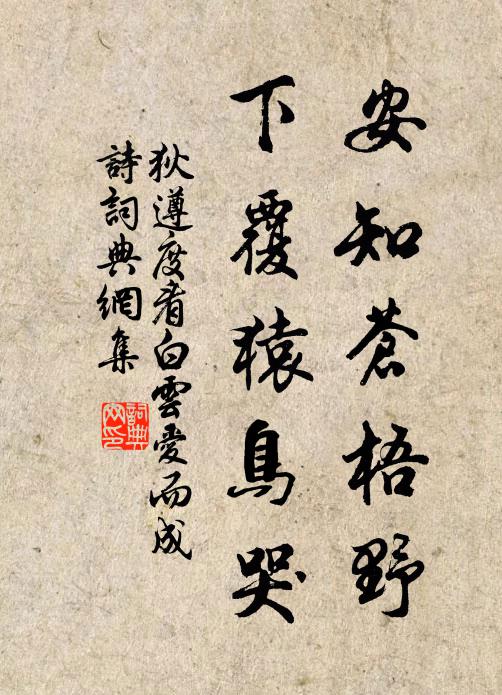 安知蒼梧野
下覆猿鳥哭
狄遵度看白雲愛而成
詩詞典網集
詞典网印